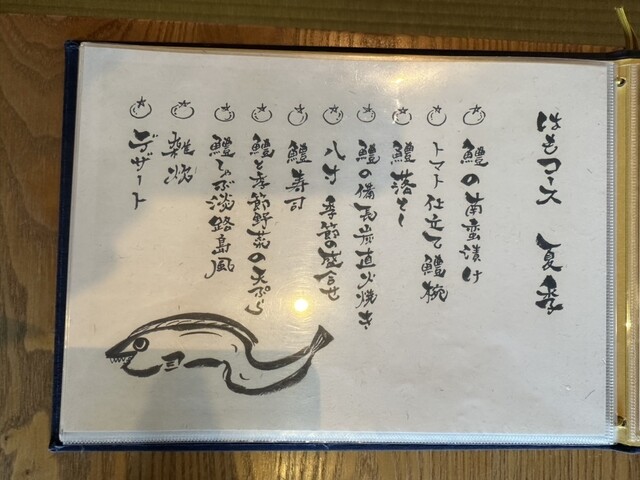 はもコース 夏季
鱧の南蛮漬け
トマト仕立て鱧椀
鱧落とし
鱧の備長炭直火焼き
八寸 季節の盛合せ
鱧寿司
鱧と季節野菜の天ぷら
鱧しゃぶ淡路島風
雑炊
デザート